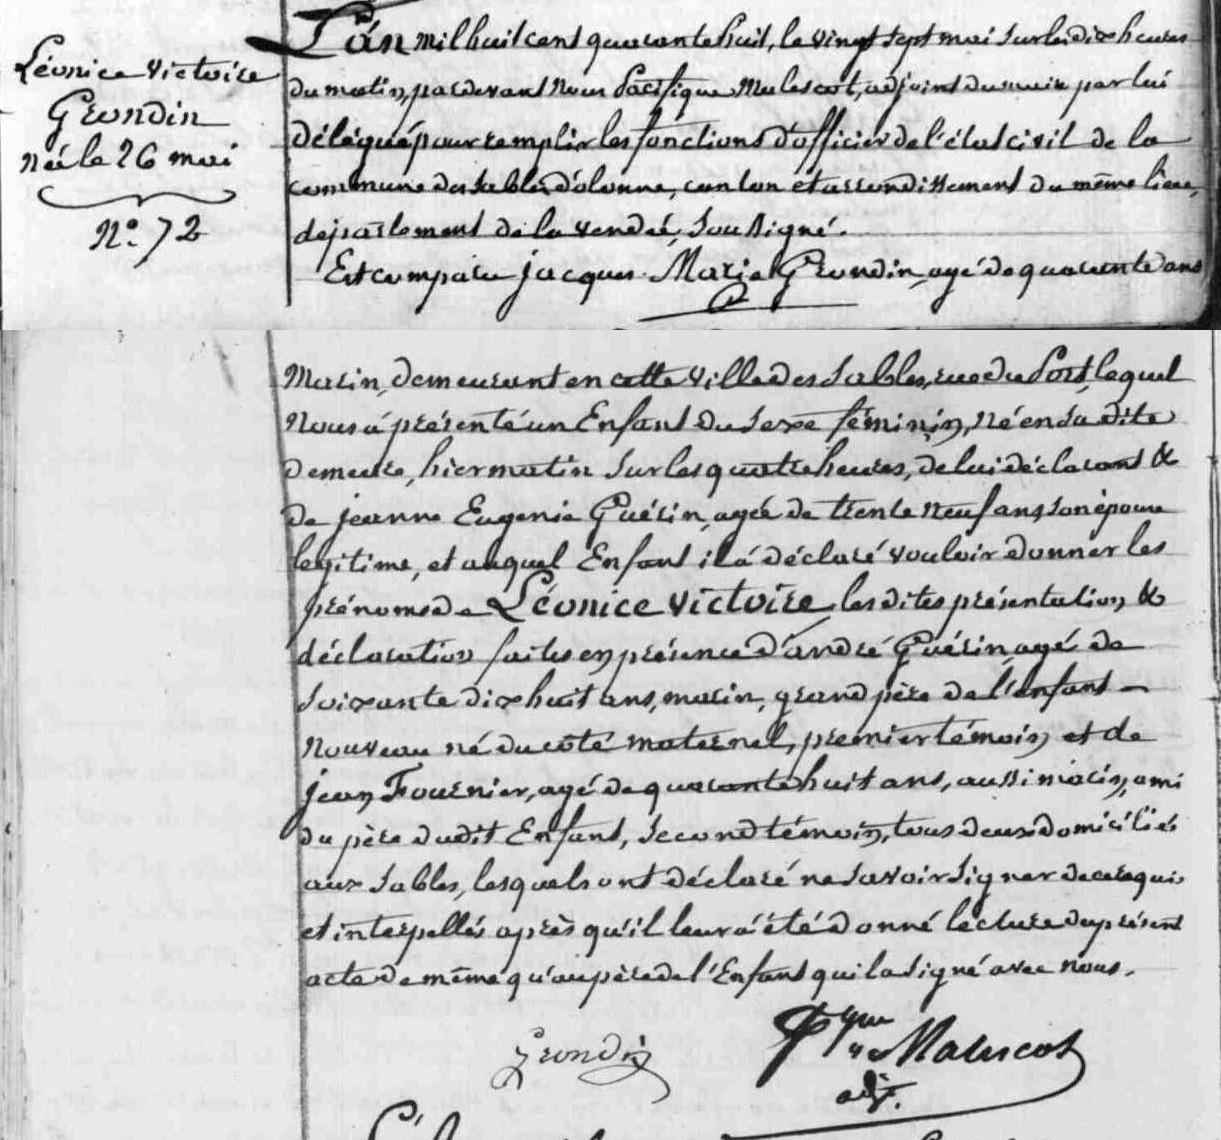 Léonice Victoire
Grondin
Née le 26 mai
N.° 72
L'an mil huit cent quarante huit, le vingt sept mai sur les dix heures
du matin, par devant nous Pacifique Malescot, adjoint du maire par lui
délégué pour remplir les fonctions d'officier de l'état civil de la
commune des Sables d'olonne, canton et arrondissement du même lieu,
département de la vendée, Soussigné.
Est comparu jacques Marie Grondin, agé de quarante ans
Marin, demeurant en cette ville des Sables, rue du Port, lequel
Nous à présenté un Enfant du Sexe féminin, Né en Sa dite
demeure, hier matin Sur les quatre heures, de lui déclarant &
de jeanne Eugenie Guérin, agée de trente neuf ans, son épouse
legitime, et auquel Enfant il à déclaré vouloir donner les
prénoms de Léonice Victoire, les dites présentation &
déclaration faites en présence d'andré Guérin, agé de
Soixante dix huit ans, marin, grand père de l'enfant —
Nouveau né du coté maternel, premier témoin, et de
Jean Fournier, agé de quarante huit ans, aussi marin, ami
du père dudit Enfant, Second témoin, tous deux domiciliés
aux Sables, lesquels ont déclaré ne Savoir Signer de ce requis
et interpellés après qu'il leur à été donné lecture du présent
acte de même qu'au père de l'Enfant qui la Signé avec nous.
Grondin
Malescot
adj.